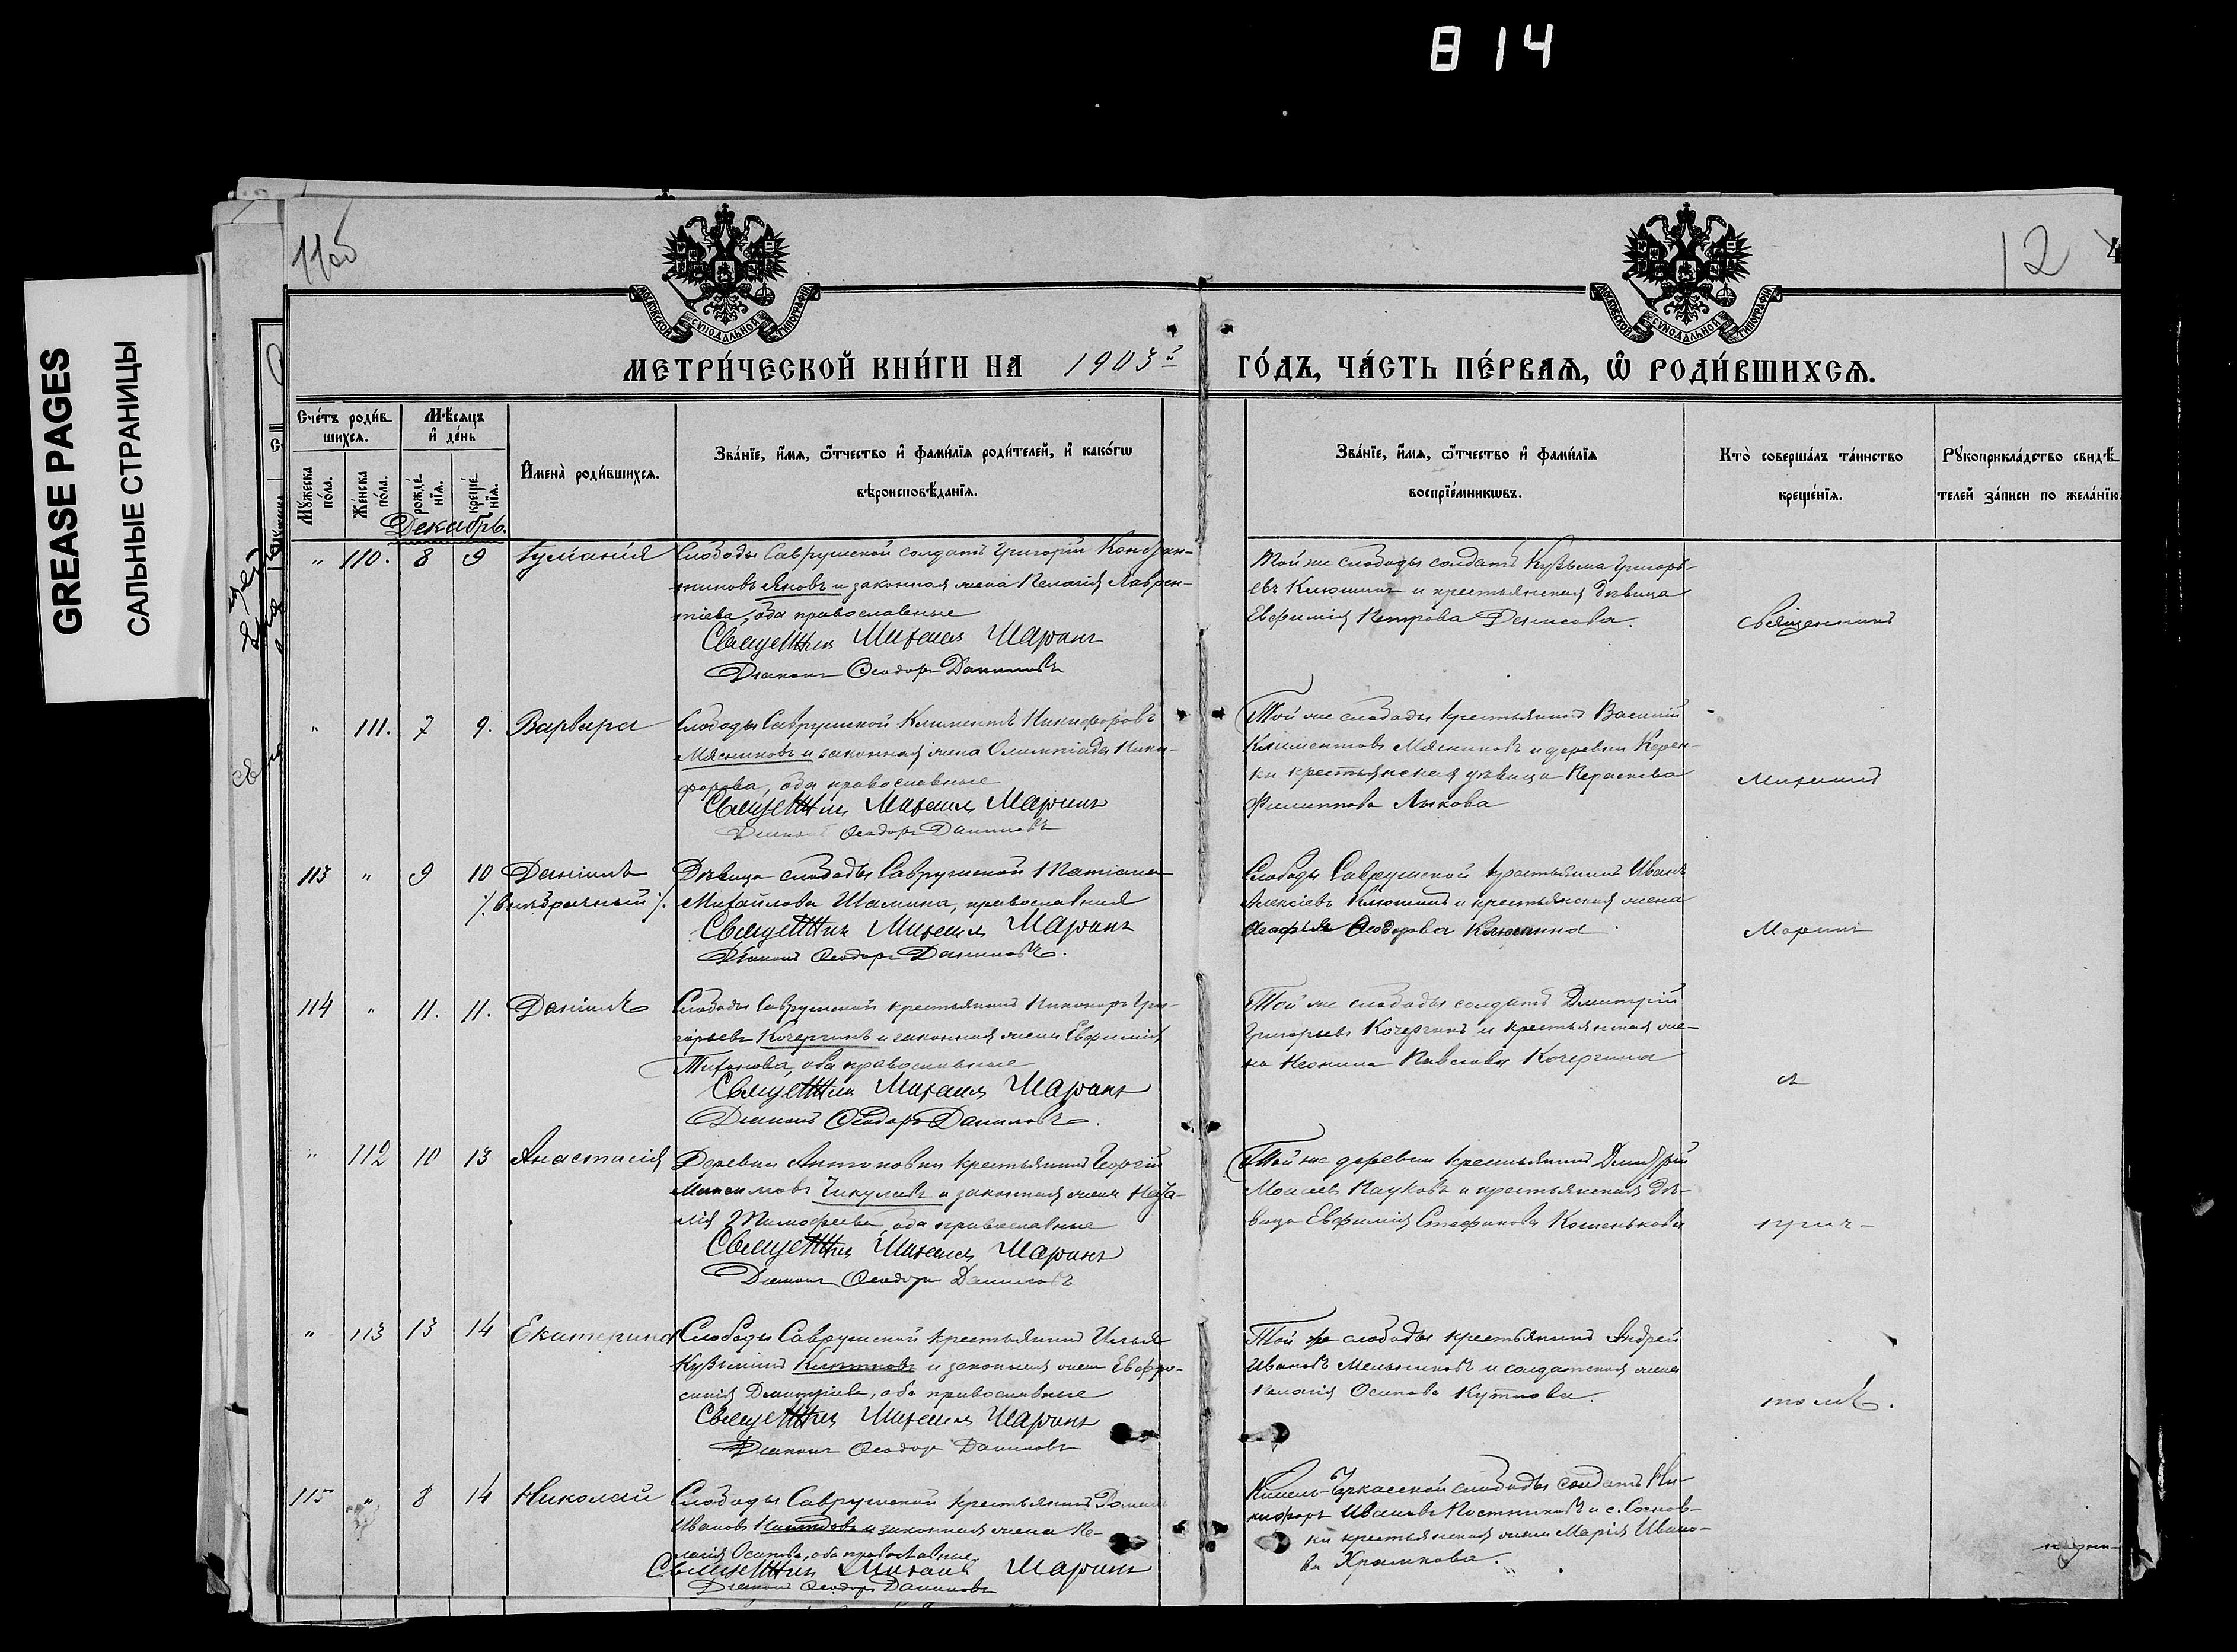 814
GREASE PAGES
САЛЬНЫЕ СТРАНИЦЫ
11об
12
4
МОСКОВСКОЙ СѴНОДАЛЬНОЙ ТИПОГРАФІИ
МОСКОВСКОЙ СѴНОДАЛЬНОЙ ТИПОГРАФІИ
МЕТРИ́ЧЕСКОЙ КНИ́ГИ НА 1903 г
ГО́ДЪ, ЧА́СТЬ ПЕ́РВАЯ, Ѡ РОДИ́ВШИХСЯ.
Сче́тъ роди́в-
шихся.
Мѣ́сяцъ
и де́нь
Му́жеска
по́ла.
Же́нска
по́ла.
рожде́-
нїя.
креще́-
нїя.
Имена̀ роди́вшихся.
Зва́нїе, и́мя, ѻ́тчество и фами́лїя роди́телей, и како́гѡ
вѣроисповѣ́данїя.
Зва́нїе, и́мя, ѻ́тчество и фами́лїя
воспрїе́мникѡвъ.
Кто̀ соверша́лъ та́инство
креще́нїя.
Рꙋкоприкла́дство свидѣ́-
телей за́писи по жела́нїю.
Декабрь.
" 110. 8 9 Іуліанія Слободы Саврушской солдатъ Григорій Кондрат-
тиновъ Яновъ и законная жена Пелагія Лаврен-
тіева, оба православные
Священникъ Михаилъ Маринъ
Діаконъ Ѳеодоръ Даниловъ
Той же слободы солдатъ Кузьма Григорь-
евъ Клюшинъ и крестьянская дѣвица
Евфимія Петрова Денисова.
Священникъ
" 111. 7 9. Варвара Слободы Саврушской Климентъ Никифоровъ
Мясниковъ и законная жена Олимпіада Ники-
форова, оба православные
Священникъ Михаилъ Маринъ
Діаконъ Ѳеодоръ Даниловъ
Той же слободы крестьянинъ Василій
Климентовъ Мясниковъ и деревни Керен-
ки крестьянская дѣвица Параскева
Филиппова Лыкова
Михаилъ
113 " 9 10 Даніилъ Дѣвица слободы Саврушской Татіана
/. внѣбрачный /. Михайлова Шамина, православная
Священникъ Михаилъ Маринъ
Діаконъ Ѳеодоръ Даниловъ.
Слободы Саврушской крестьянинъ Иванъ
Алексіевъ Клюшинъ и крестьянская жена
Агафья Ѳеодорова Клюшина
Маринъ
114 " 11. 11. Даніилъ Слободы Саврушской крестьянинъ Никаноръ Гри-
горьевъ Кочергинъ и законная жена Евфимія
Тихонова, оба православные
Священникъ Михаилъ Маринъ
Діаконъ Ѳеодоръ Даниловъ.
Той же слободы солдатъ Димитрій
Григорьевъ Кочергинъ и крестьянская же-
на Неонила Павлова Кочергина
съ
" 112 10 13 Анастасія Деревни Антоновки крестьянинъ Георгій
Максимовъ Чикулевъ и законная жена Ната-
лія Тимофеева, оба православные
Священникъ Михаилъ Маринъ
Діаконъ Ѳеодоръ Даниловъ
Той же деревни крестьянинъ Дмитрій
Моисеевъ Пауковъ и крестьянская дѣ-
вица Евфимія Стефанова Кошенькова
прич-
" 113 13 14 Екатерина Слободы Саврушской крестьянинъ Илья
Кузьминъ и законная жена Евфро-
синія Димитріева, оба православные
Священникъ Михаилъ Маринъ
Діаконъ Ѳеодоръ Даниловъ
Той же слободы крестьянинъ Андрей
Ивановъ Мельниковъ и солдатская жена
Пелагія Осипова Кутпова.
томъ.
115 " 8 14 Николай Слободы Саврушской крестьянинъ Романъ
Ивановъ и законная жена Пе-
лагія Осипова, оба православные.
Священникъ Михаилъ Маринъ
Діаконъ Ѳеодоръ Даниловъ
Кинель-Черкасской слободы солдатъ Ни-
кифоръ Ивановъ Постниковъ и с. Соснов-
ки крестьянская жена Марія Ивано-
ва Храмкова.